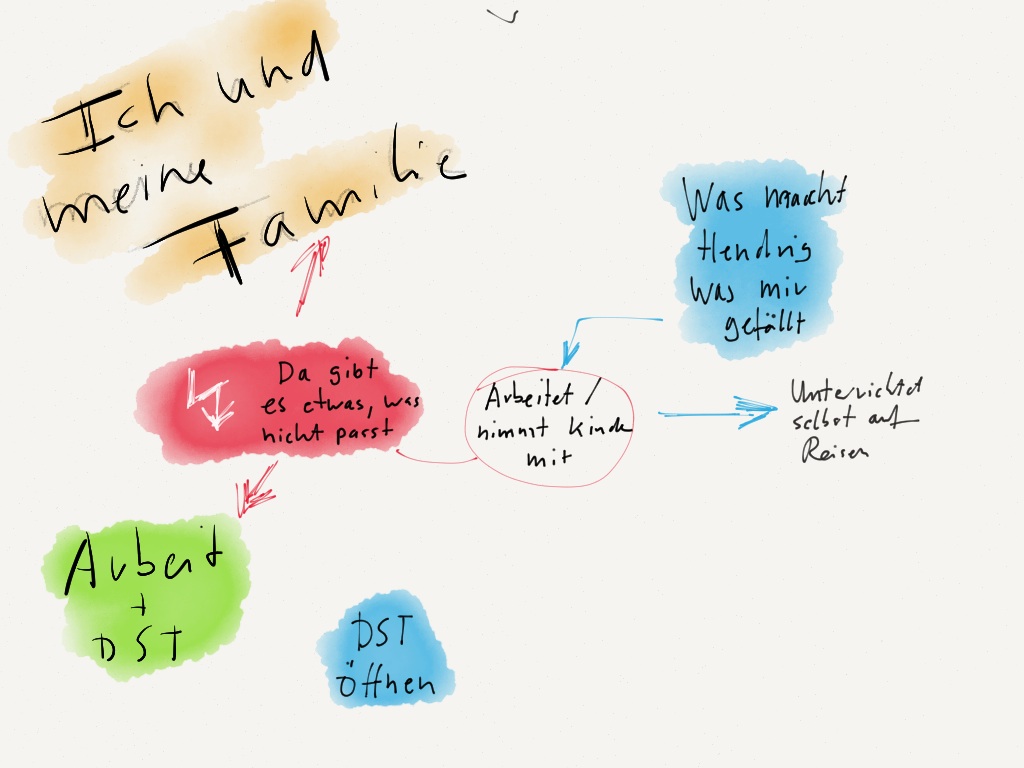 Ich und
meine
Familie
Was macht
Hendrig
Was mir
gefällt
Da gibt
es etwas, was
nicht passt
Arbeitet /
nimmt Kinder
mit
Unterrichtet
selbst auf
Reisen
Arbeit
+
DST
DST
öffnen